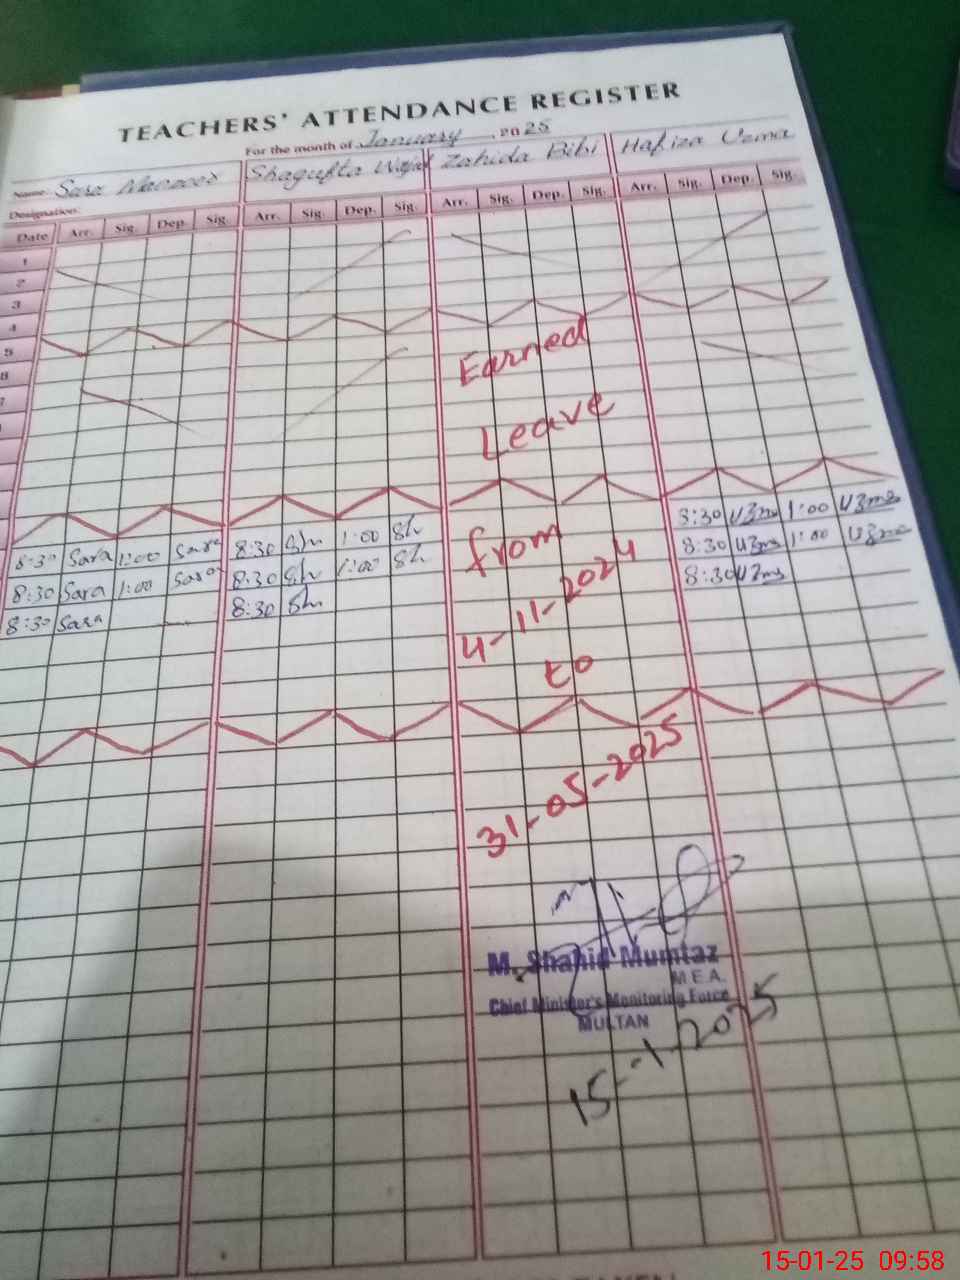 TEACHERS' ATTENDANCE REGISTER
For the month of January, 2025
Name: Sara Shagufta Zahida Bibi Hafiza Uzma
Designation:
Date Arr. Sig. Dep. Sig. Arr. Sig. Dep. Sig. Arr. Sig. Dep. Sig. Arr. Sig. Dep. Sig.
1
2
3
4
5
6
7
Earned
Leave
from
4-11-2024
to
31-05-2025
8:30 Sara 1:00 Sara 8:30 Sh 1:00 Sh 8:30 Uzma 1:00 Uzma
8:30 Sara 1:00 Sara 8:30 Sh 1:00 Sh 8:30 Uzma 1:00 Uzma
8:30 Sara 8:30 Sh 8:30 Uzma
M. Shahid Mumtaz
M.E.A.
Chief Minister's Monitoring Force
MULTAN
15-1-2025
15-01-25 09:58